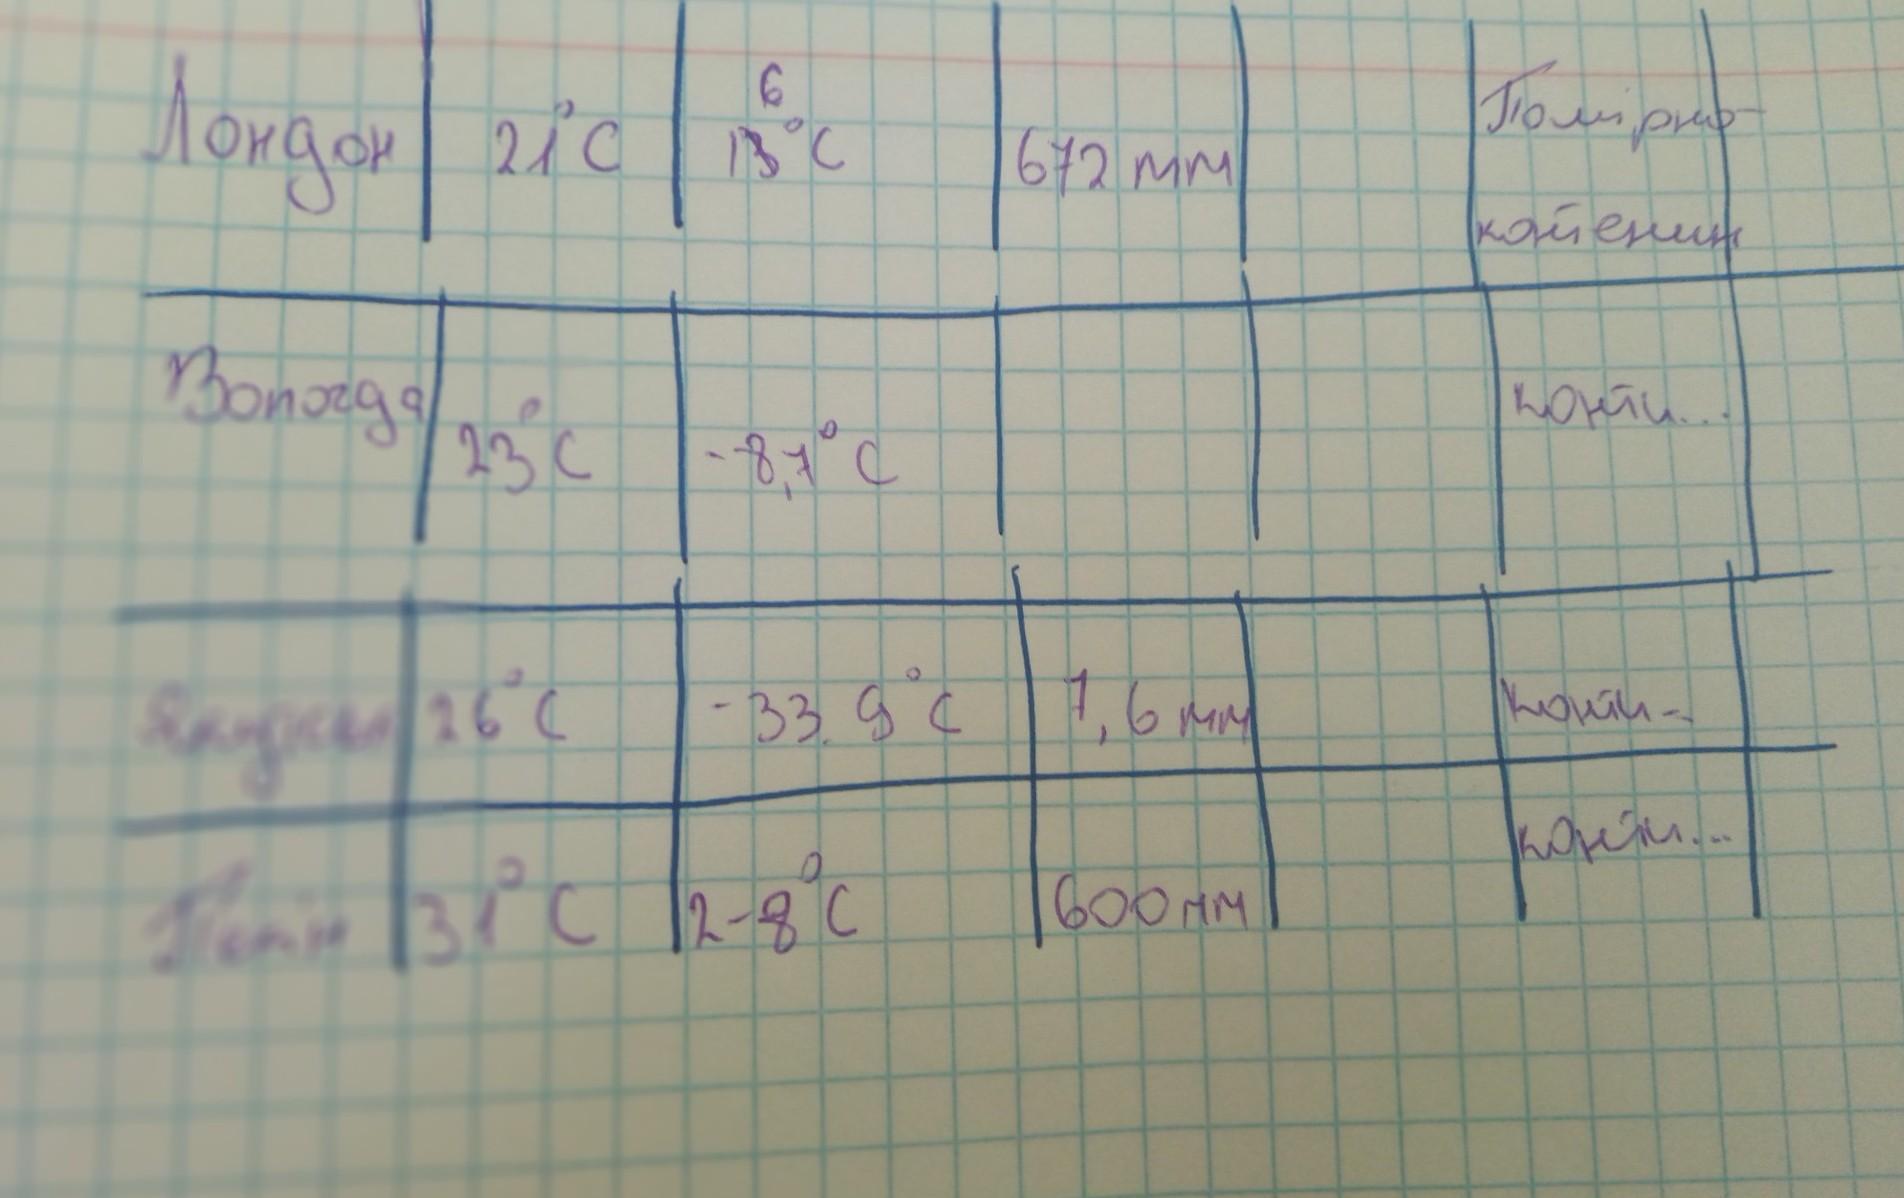 Лондон 21°C 6 13°C 672 мм Помірно-
контенин
Вологда 23°C -8,7°C конти...
Якудськ 26°C -33.9°C 7,6 мм конти..
Пекін 31°C 2-8°C 600 мм конти...